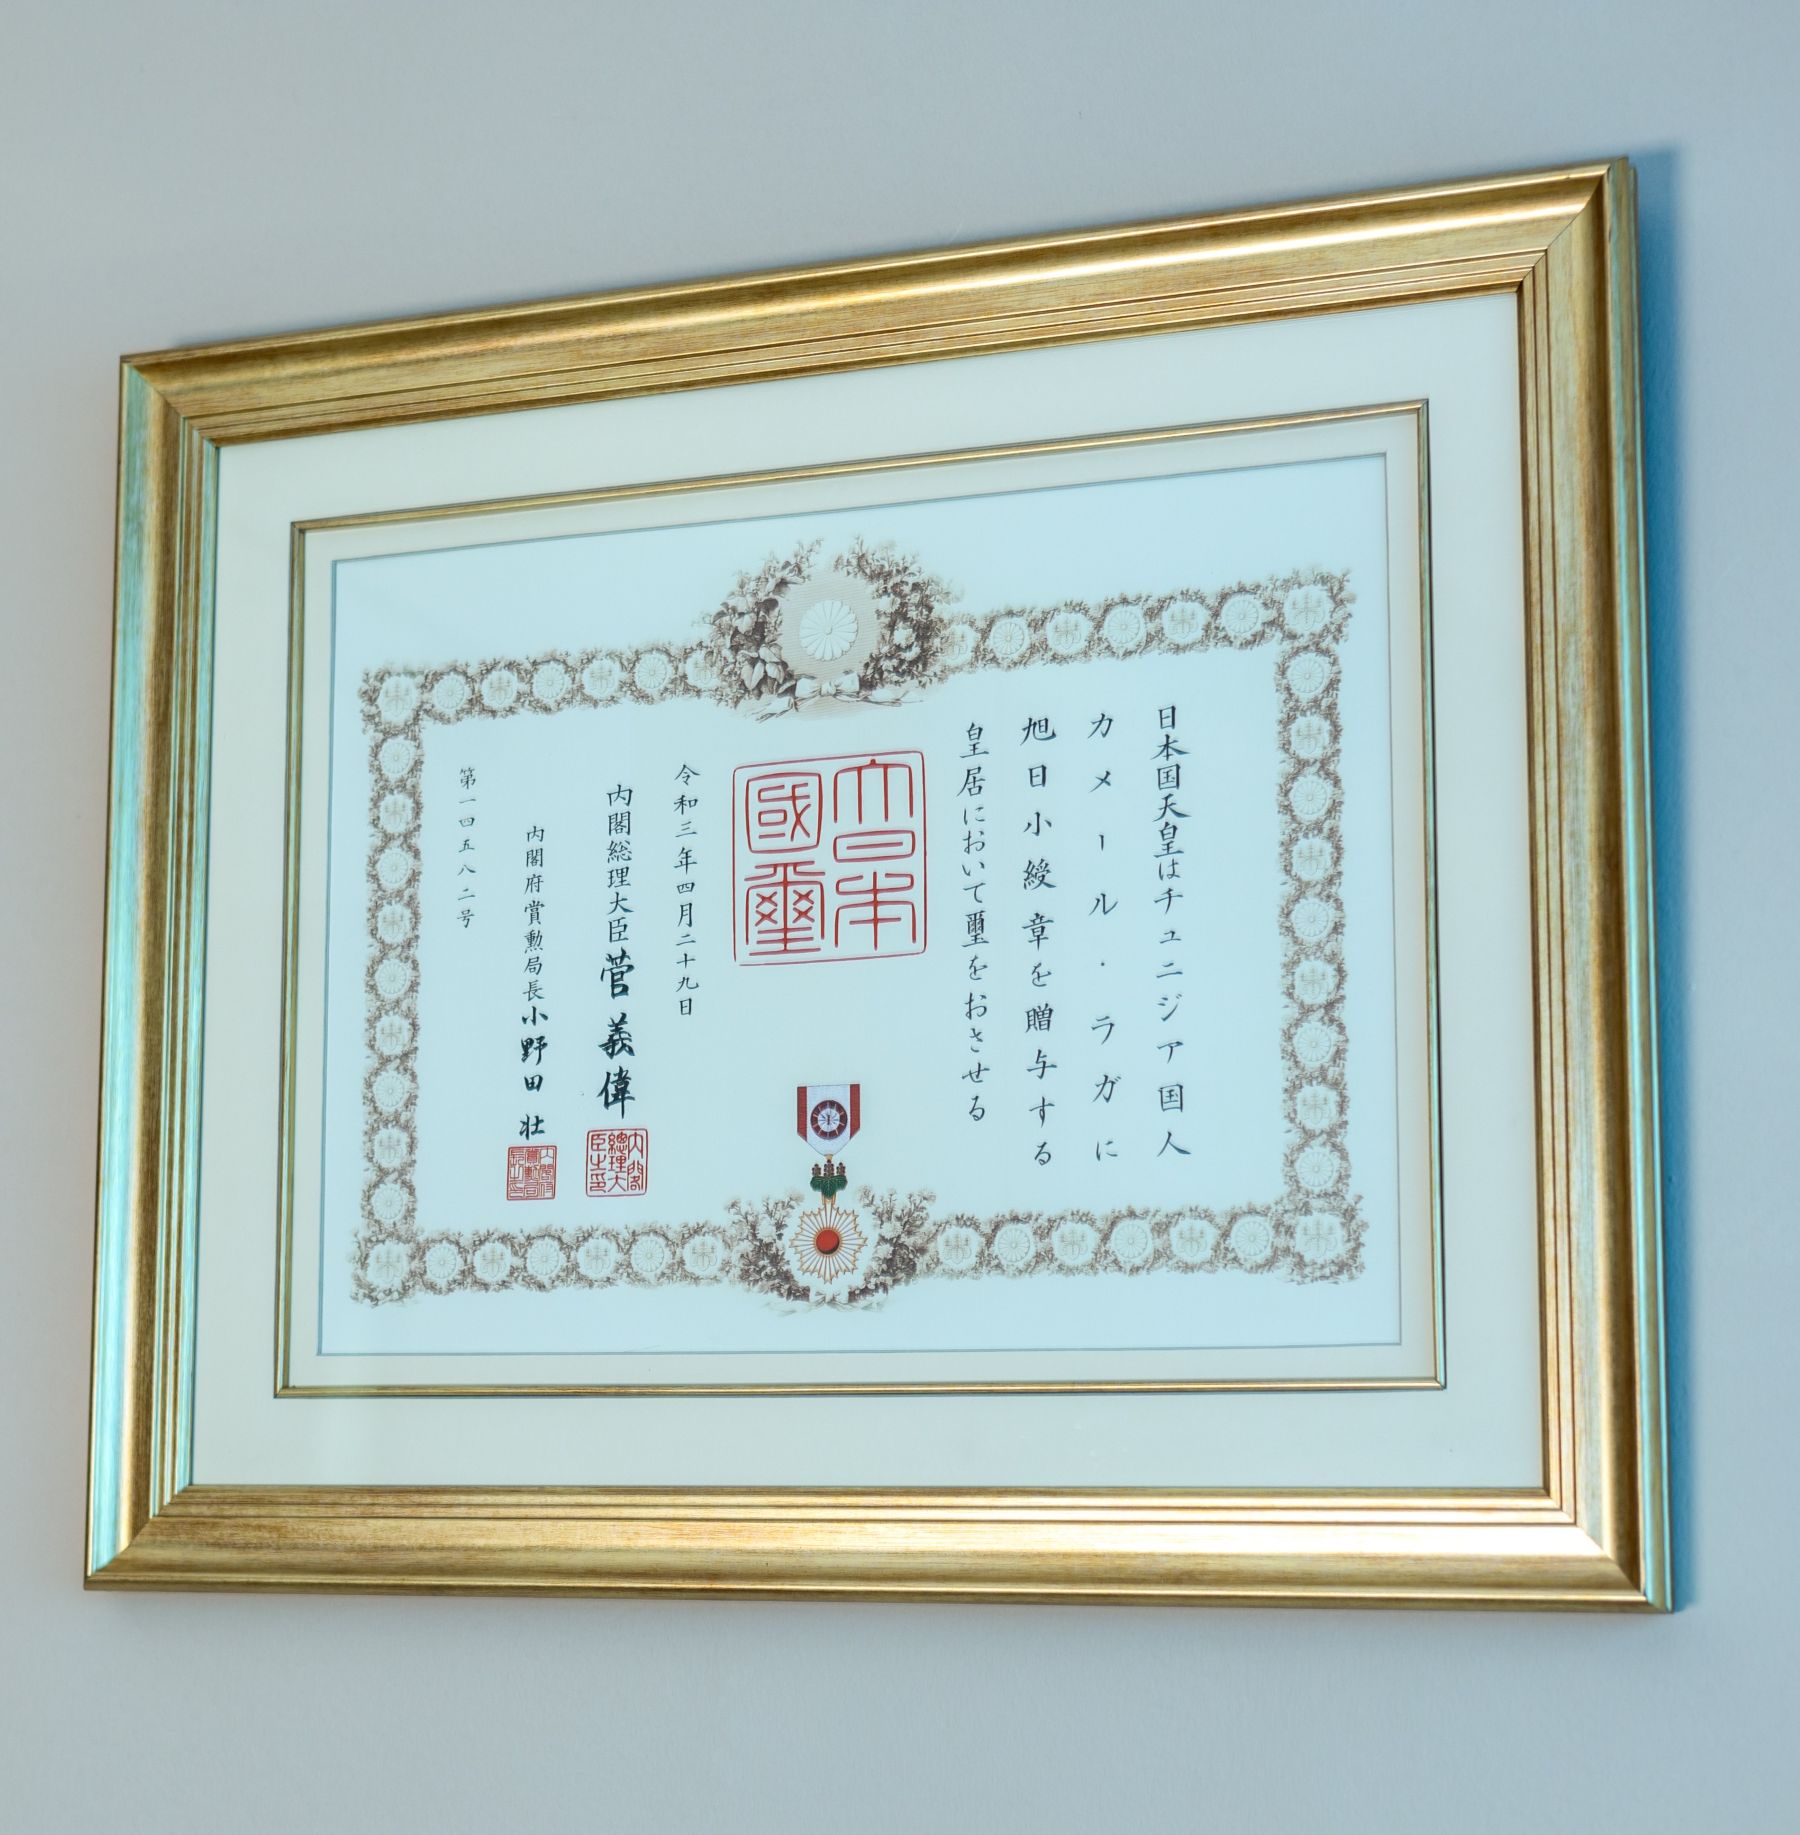 日本国天皇はチュニジア国人
カメール・ラガに
旭日小綬章を贈与する
皇居において璽をおさせる
大日本
國璽
令和三年四月二十九日
内閣総理大臣菅義偉
内閣総理大臣之印
内閣府賞勲局長小野田壮
第一四五八二号